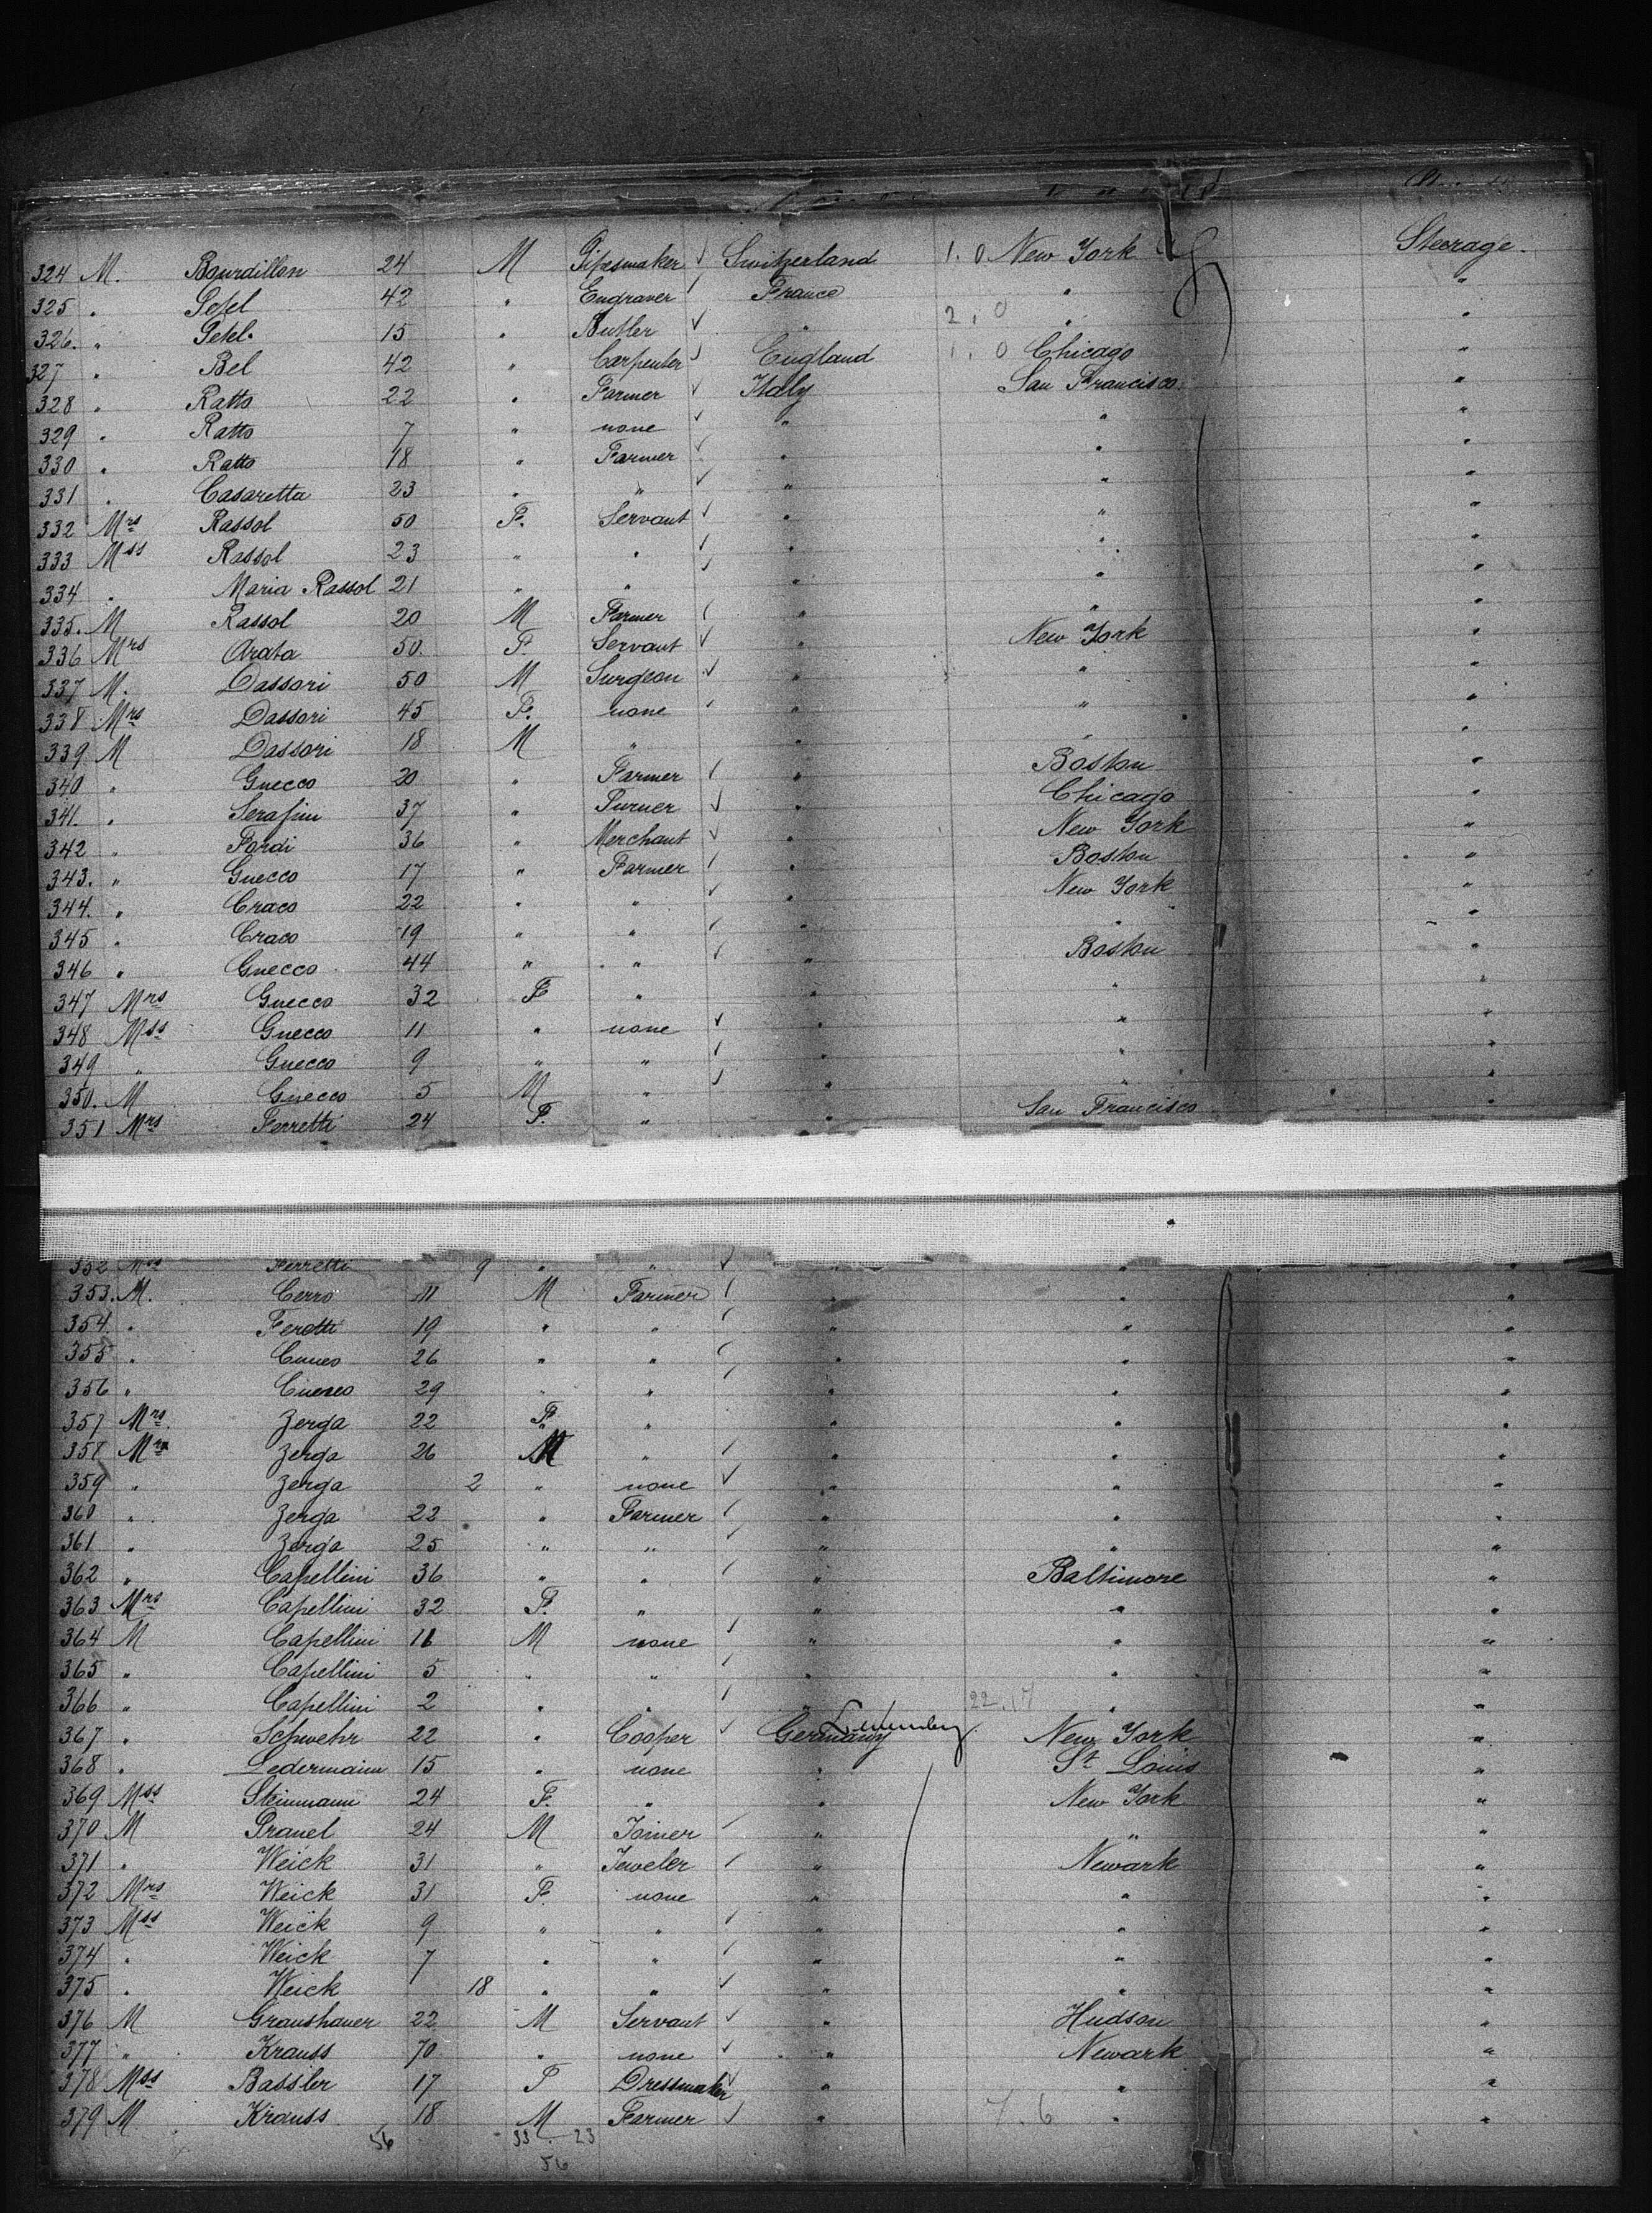 324 M. Bourdillon 24 M Gipsmaker ✓ Switzerland 1. 0 New York Steerage.
325 " 42 " Engraver France " "
326. " 15 " Butler ✓ " 2, 0 " "
327 " Bel 42 " Carpenter ✓ England 1. 0 Chicago "
328 " Ratto 22 " Farmer ✓ Italy San Francisco "
329 " Ratto 7 " none ✓ " " "
330 " Ratto 18 " Farmer ✓ " " "
331 " Casaretta 23 " " ✓ " " "
332 Mrs Rassol 50 F. Servant ✓ " " "
333 Mss Rassol 23 " " ✓ " " "
334 " Maria Rassol 21 " " ✓ " " "
335. M Rassol 20 M Farmer ✓ " " "
336 Mrs Arata 50. F. Servant ✓ " New York "
337 M. Dassori 50 M Surgeon ✓ " " "
338 Mrs Dassori 45 F. none ✓ " " "
339 M Dassori 18 M " " " "
340 " Gnecco 20 " Farmer ✓ " Boston "
341. " Serafini 37 " Turner ✓ " Chicago "
342 " Pordi 36 " Merchant ✓ " New York "
343. " Gnecco 17 " Farmer ✓ " Boston "
344. " Craco 22 " " ✓ " New York "
345 " Craco 19 " " ✓ " " "
346 " Gnecco 44 " " ✓ " Boston "
347 Mrs Gnecco 32 F " " " "
348 Mss Gnecco 11 " none ✓ " " "
349 " Gnecco 9 " " ✓ " " "
350. M Gnecco 5 M " ✓ " " "
351 Mrs Ferretti 24 F. " " San Francisco "
352 Mss Ferretti 9 " " ✓ " "
353. M. Cerro 11 M Farmer ✓ " " "
354. " Feretti 19 " " ✓ " " "
355 " Cuneo 26 " " ✓ " " "
356 " Cueneo 29 " " ✓ " " "
357 Mrs. Zerga 22 F. " " " "
358 Zerga 26 M " ✓ " " "
359 " Zerga 2 " none ✓ " " "
360 " Zerga 22 " Farmer ✓ " " "
361. " Zerga 25 " " ✓ " " "
362 " Capellini 36 " " ✓ " Baltimore "
363 Mrs Capellini 32 F. " " " "
364 M Capellini 11 M none ✓ " " "
365 " Capellini 5 " " ✓ " " "
366 " Capellini 2 " " ✓ " 22. 17 " "
367 " Schwehr 22 " Cooper ✓ Germany New York "
368 " Ledermann 15 " none " St Louis "
369 Mss Steinmann 24 F. " " New York "
370 M Pranel 24 M Joiner ✓ " " "
371 " Weick 31 " Jeweler ✓ " Newark "
372 Mrs Weick 31 F. none " " "
373 Mss Weick 9 " " ✓ " " "
374 " Weick 7 " " ✓ " " "
375 " Weick 18 " " ✓ " " "
376 M Graushauer 22 M Servant ✓ " Hudson "
377 " Krauss 70 " none ✓ " Newark "
378 Mss Bassler 17 F Dressmaker ✓ " " "
379 M Krauss 18 M Farmer ✓ " 7. 6 " "
56 33 . 23
56